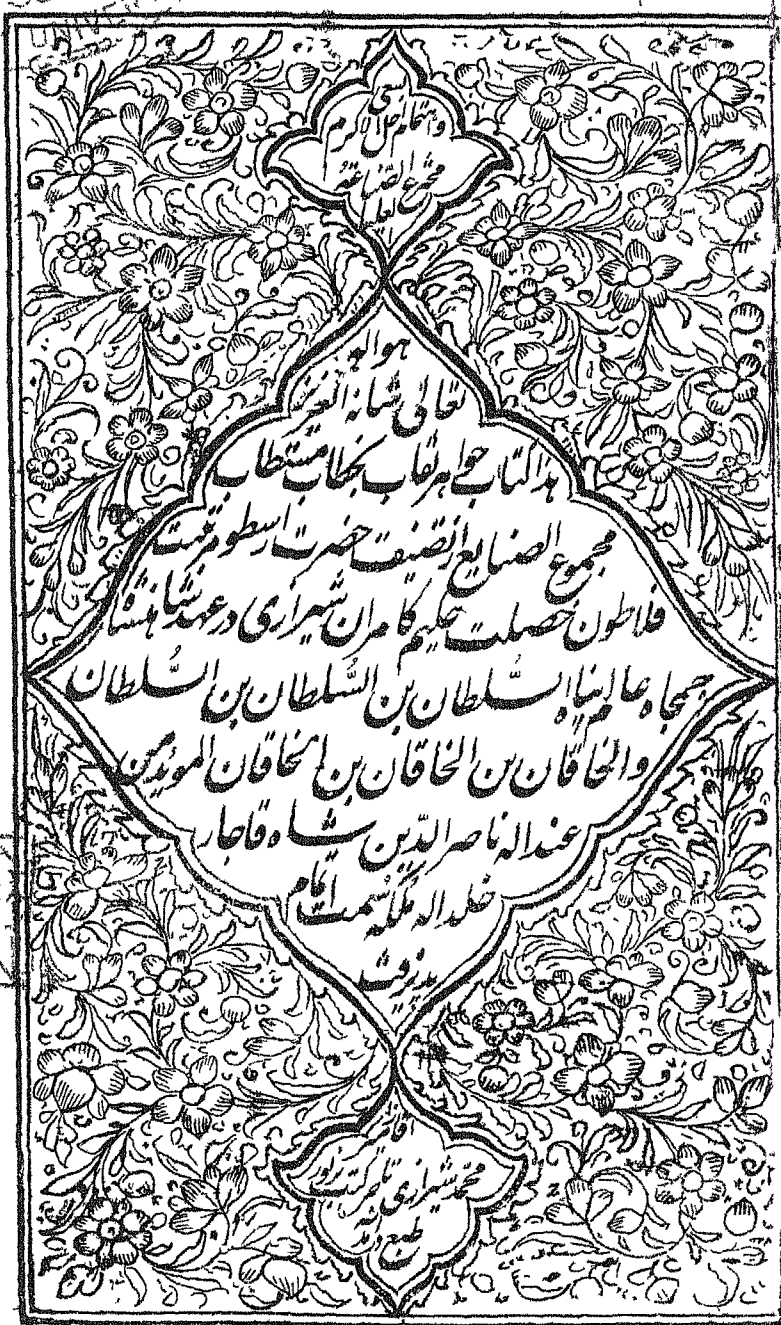 UNIVE
و اهتمام اقل
مجموع الصناعة
هو الله
تعالی شانه العزیز
هذا کتاب جواهر نقاب بخطاب مستطاب
مجموع الصنایع از تصنیف حضرت ارسطو مرتبت
فلاطون خصلت حکیم کامران شیرازی در عهد شاهنشاه
جمجاه عالم پناه السلطان بن السلطان بن السلطان
والخاقان بن الخاقان بن الخاقان المؤید من
عند اله ناصر الدین شاه قاجار
خلد اله ملکه سمت اتمام
پذیرفت
محمد شیرازی تاجر کتب زیور
طبع